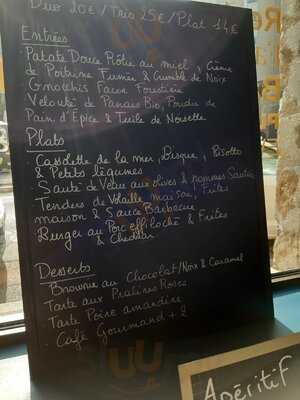 Duo 20€ / Trio 25€ / Plat 14€
Entrées
Patate Douce Rôtie au miel, Crème
de Poitrine Fumée & Crumble de Noix
Gnocchis Façon Forestière
Velouté de Panais Bio, Poudre de
Pain d'Epice & Tuile de Noisette
Plats
Cassolette de la mer, Bisque, Risotto
& Petits légumes
Sauté de Veau aux olives & pommes Sautées
Tenders de Volaille maison, Frites
maison & Sauce Barbecue
Burger au Porc effiloché & Frites
& Cheddar
Desserts
Brownie au Chocolat/Noix & Caramel
Tarte aux Pralines Roses
Tarte Poire amandine
Café Gourmand + 2
Apéritif